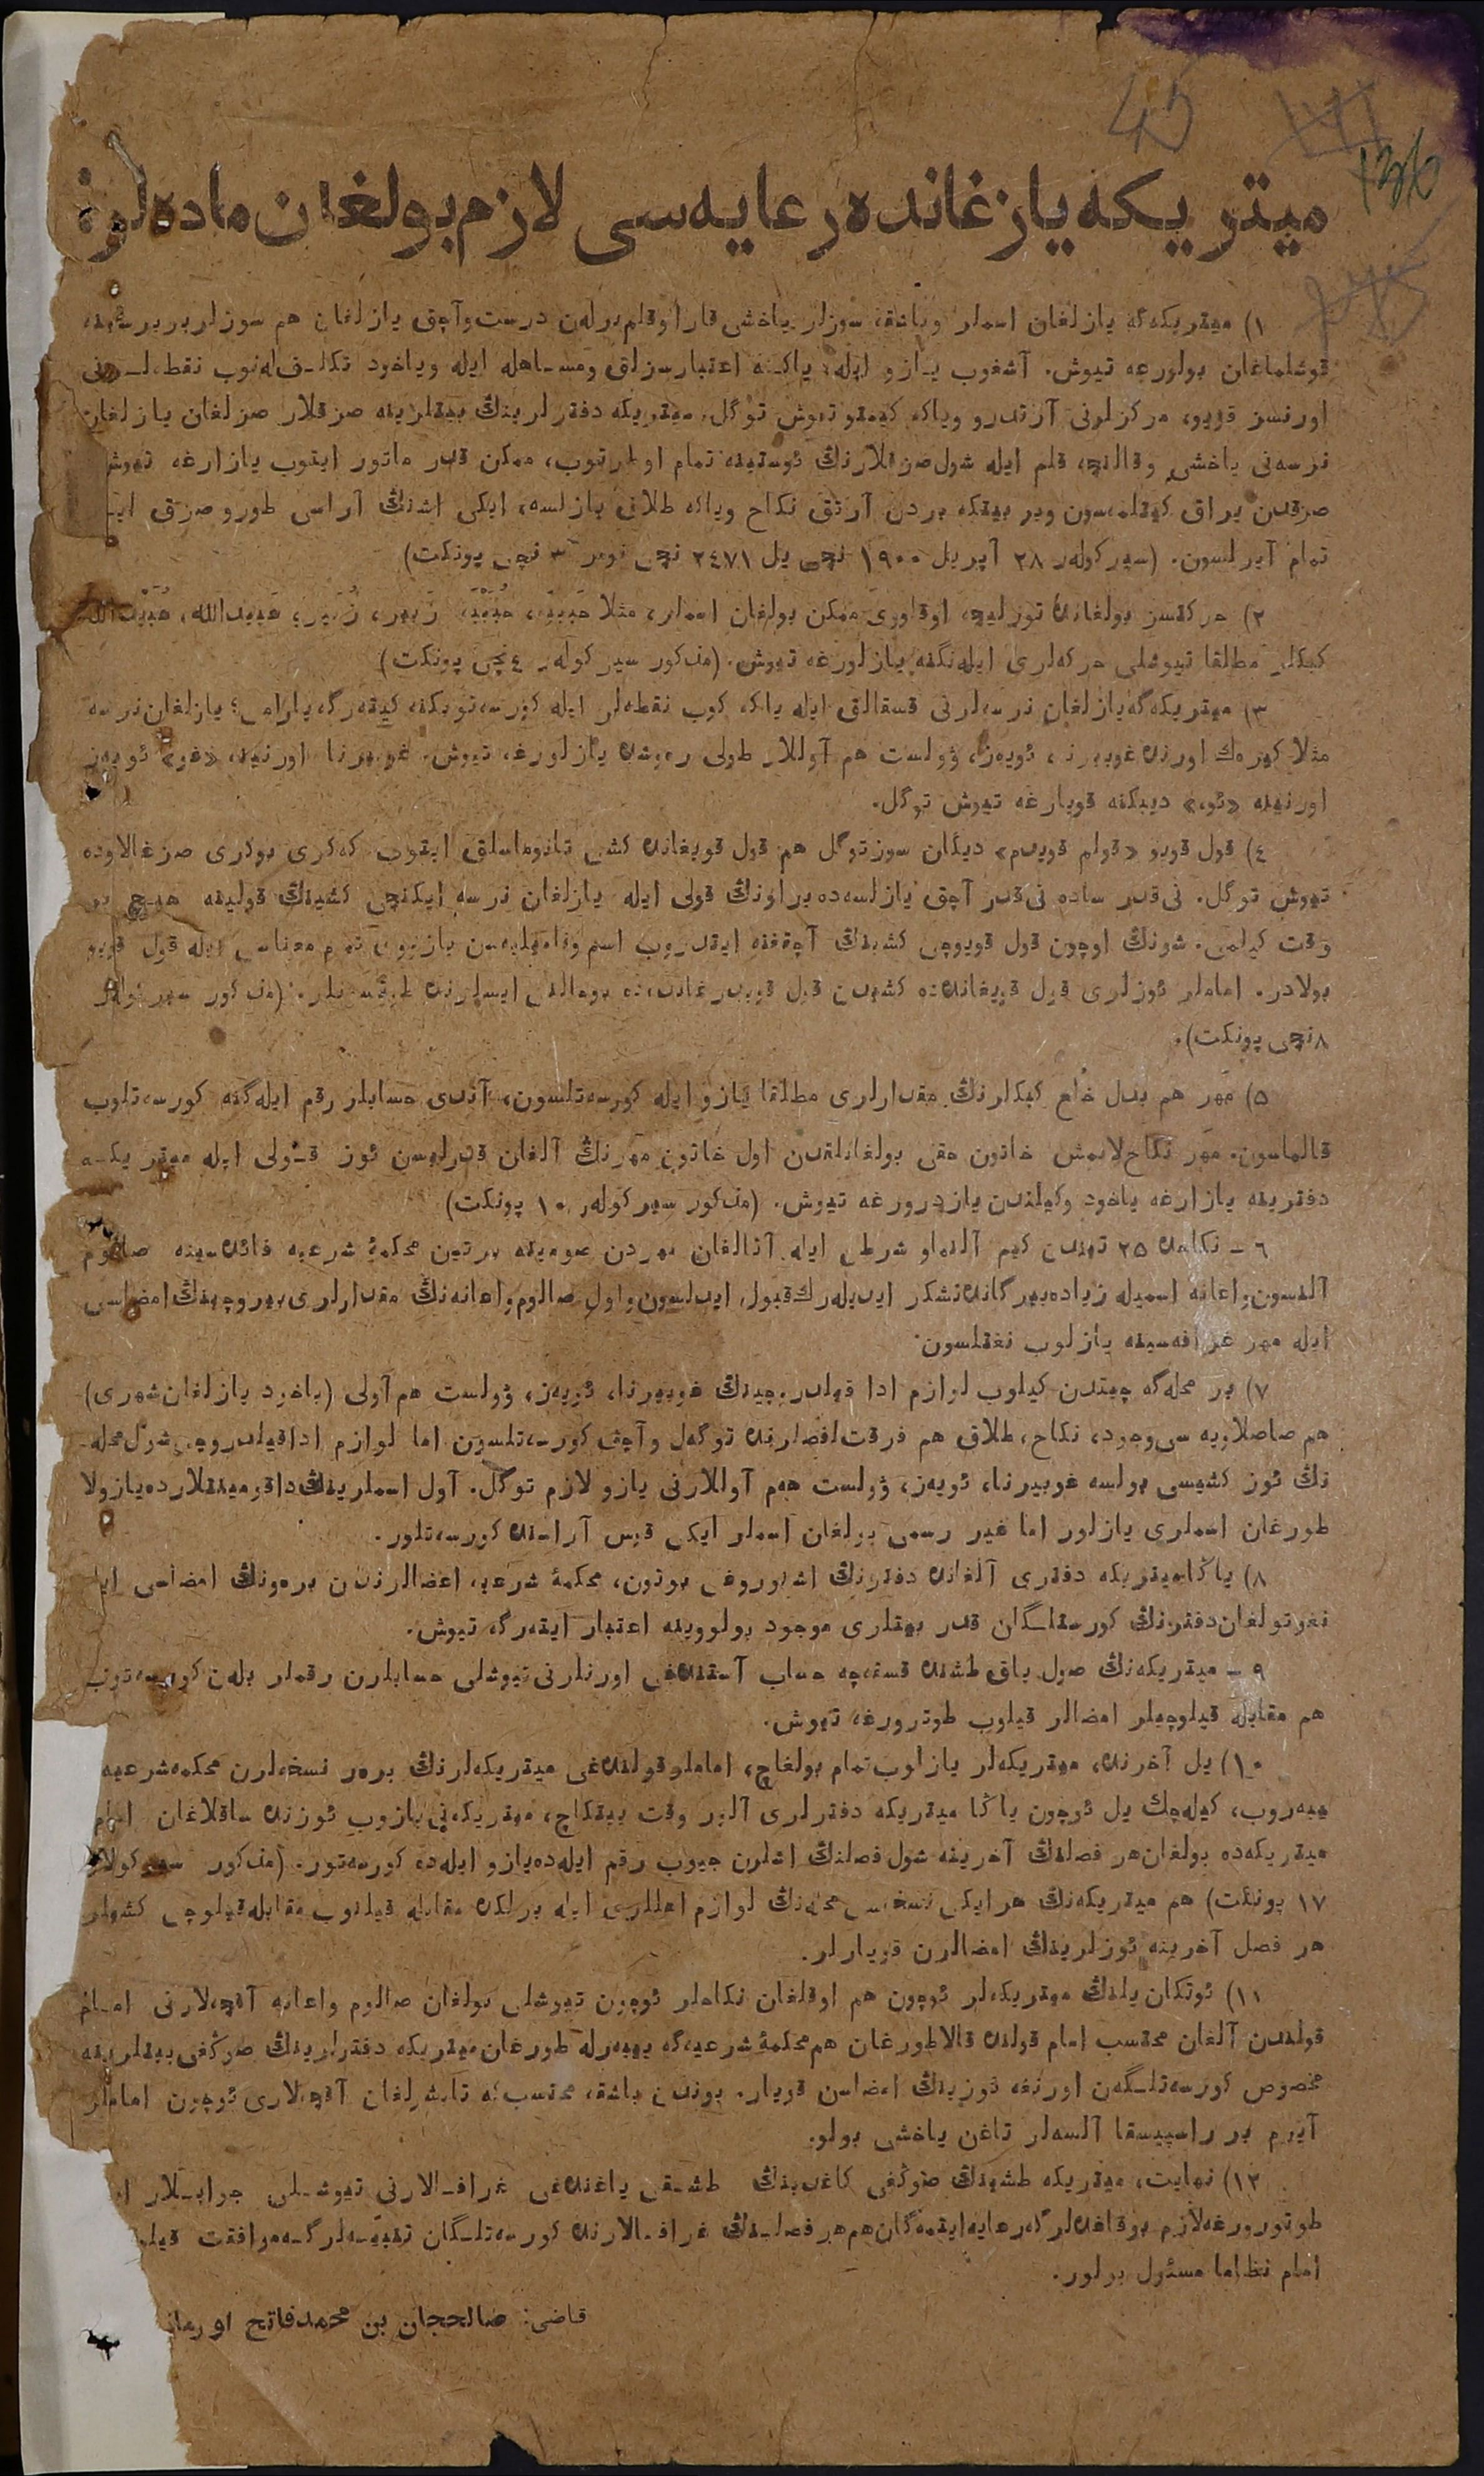 45
136
میتریکه یازغانده رعایه‌سی لازم بولغان ماده‌لر:
١) میتریکه‌گه یازلغان اسملر وباشقه سوزلر یاخشی قارا قلم برلەن درست وآچق یازلغان هم سوزلر بر برسینه
قوشلماغان بولورغه تیوش. آشغوب یازو ایله، یاکه اعتبارسزلق ومساهله ایله ویاخود تکلف‌له‌نوب نقطه‌لرنی
اورنسز قویو، مرکزلرنی آرتدرو ویاکه کیمتو تیوش توگل. میتریکه دفترلرینڭ بیتلرینه صزقلار صزلغان یازلغان
نرسه‌نی یاخشی وقالنچه قلم ایله شول صزقلارنڭ ئوستینه تمام اولدرتوب، ممکن قدر ماتور ایتوب یازارغه تیوش
صزقدن یراق کیتلمەسون وبر بیتکه بردن آرتق نکاح ویاکه طلاق یازلسه، ایکی اشنڭ آراسی طورو صزق ایله
تمام آیرلسون. (سیرکولەر ٢٨ آپریل ١٩٠٠ نچی یل ٢٤٧١ نچی نومیر ٣ نچی پونکت)
٢) حرکتسز بولغانده توزلیچه اوقلوری ممکن بولغان اسملر، مثلا حَبیبه، حُبَیْبَه، زَبیر، زُبَیر، عَبیدالله، عُبَیْدالله
کبکلر مطلقا تیوشلی حرکه‌لری ایله‌نگنه یازلورغه تیوش. (مذکور سیرکولەر ٤ نچی پونکت)
٣) میتریکه‌گه یازلغان نرسه‌لرنی قسقالق ایله یاکه کوب نقطه‌لر ایله کورسه‌توبکنه کیته‌رگه یارامی؛ یازلغان نرسه
مثلا کیره‌ك اورنده غوبیرنا، ئویەز، ۋولست هم آوللار طولی ره‌وشده یازلورغه تیوش. غوبیرنا اورنینه «غو» ئویەز
اورنینه «ئو» دیبکنه قویارغه تیوش توگل.
٤) قول قویو «قولم قویدم» دیگان سوز توگل هم قول قویغانده کشی تانوماسلق ایتوب کەکری بوکری صزغالاوده
تیوش توگل. نی‌قدر ساده نی‌قدر آچق یازلسه‌ده براونڭ قولی ایله یازلغان نرسه ایکنچی کشینڭ قولینه هیچ بر
وقت کیلمی. شونڭ اوچون قول قویوچی کشینڭ آچققنه ایتدروب اسم وفامیلیەسن یازووی تمام معناسی ایله قول قویو
بولادر. اماملر ئوزلری قول قویغانده‌ده کشیدن قول قویدرغانده‌ده بوحالنی ایسلرنده طوتسونلر. (مذکور سیرکولەر
٨ نچی پونکت).
٥) مَهر هم بدل خلع کبکلرنڭ مقدارلری مطلقا یازو ایله کورسه‌تلسون، آندی حسابلر رقم ایله‌گنه کورسه‌تلوب
قالماسون. مَهر نکاح‌لانمش خاتون حقی بولغانلقدن اول خاتون مَهرنڭ آلغان قدرلیسن ئوز قولی ایله میتریکه
دفترینه یازارغه یاخود وکیلندن یازدرورغه تیوش. (مذکور سیرکولەر ١٠ پونکت)
٦ – نکاحده ٢٥ تیندن کیم آلنماو شرطی ایله آتالغان مهردن عمومیته برتین محکمهٔ شرعیه فائده‌سینه صالوم
آلنسون واعانه اسمیله زیاده بیرگانده تشکر ایدیله‌رك قبول ایدلسون واول صالوم واعانه‌نڭ مقدارلری بیروچینڭ امضاسی
ایله مهر غرافه‌سینه یازلوب نغتلسون.
٧) بر محله‌گه چیتدن کیلوب لوازم ادا قیلدروچینڭ غوبیرنا، ئویەز، ۋولست هم آولی (یاخود یازلغان شهری)
هم صاصلاویه سی وجود، نکاح، طلاق هم فرقت لفصلرنده توگەل وآچق کورسه‌تلسون اما لوازم اداقیلدروچی شول محله
نڭ ئوز کشیسی بولسه غوبیرنا، ئویەز، ۋولست هیم آوللارنی یازو لازم توگل. آول اسملرینڭ داقومینتلارده یازولا
طورغان اسملری یازلور اما غیر رسمی بولغان اسملر ایکی قوس آراسنده کورسه‌تلور.
٨) یاڭا میتریکه دفتری آلغانده دفترنڭ اشنوروغی بوتون، محکمهٔ شرعیه اعضالرندن بره‌ونڭ امضاسی ایله
نغرتولغان دفترنڭ کورستلگان قدر بیتلری موجود بولووینه اعتبار ایته‌رگه تیوش.
٩ – میتریکه‌نڭ صول یاق طشنده قسقه‌چه حساب آستنده‌غی اورنلرنی تیوشلی حسابلرن رقملر بلەن کورسه‌توب
هم مقابله قیلوچیلر امضالر قیلوب طوترورغه تیوش.
١٠) یل آخرنده، میتریکه‌لر یازلوب تمام بولغاچ، اماملر قولنده‌غی میتریکه‌لرنڭ برەر نسخه‌لرن محکمه شرعیه
ییبەروب، کیله‌چك یل ئوچون یاڭا میتریکه دفترلری آلور وقت ییتکاچ، میتریکه‌نی یازوب ئوزنده ساقلاغان امام
میتریکه‌ده بولغان هر فصلنڭ آخرینه شول فصلنڭ اشلرن جیوب رقم ایله‌ده یازو ایله‌ده کورسه‌تور. (مذکور سیرکولار
١٧ پونکت) هم میتریکه‌نڭ هر ایکی نسخه‌سی محله‌نڭ لوازم اهللری ایله برلکده مقابله قیلنوب مقابله قیلوچی کشیلر
هر فصل آخرینه ئوزلرینڭ امضالرن قویارلر.
١١) ئوتکان یلنڭ میتریکه‌لر ئوچون هم اوقلغان نکاحلر ئوچون تیوشلی بولغان صالوم واعانه آقچه‌لارنی امام
قولندن آلغان محتسب امام قولنده قالا طورغان هم محکمهٔ شرعیه‌گه ییبەرله طورغان میتریکه دفترلرینڭ صوڭغی بیتلرینه
مخصوص کورسه‌تلگەن اورنغه ئوزینڭ امضاسن قویار. بوندن باشقه محتسب‌که تابشرلغان آقچه‌لاری ئوچون اماملر
آیرم بر راسپیسقا آلسه‌لر تاغن یاخشی بولو.
١٢) نهایت، میتریکه طشینڭ صوڭغی کاغدینڭ طشقی یاغنده‌غی غرافالارنی تیوشلی جوابلار
طوتورورغه لازم بو قاعده‌لرگه رعایه ایتمەگان هم هر فصلنڭ غرافالارنده کورسه‌تلگان تنبیه‌لرگه موافقت
امام نظاما مسئول بولور.
قاضی: صالحجان بن محمدفاتح